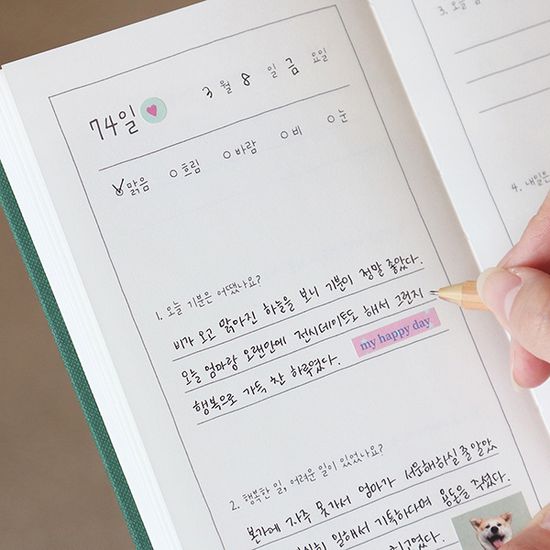 74일 3월 8일 금요일
맑음 흐림 바람 비 눈
1. 오늘 기분은 어땠나요?
비가 오고 맑아진 하늘을 보니 기분이 정말 좋았다.
오늘 엄마랑 오랜만에 전시데이트도 해서 그런지
행복으로 가득 찬 하루였다.
my happy day
2. 행복한 일, 어려운 일이 있었나요?
본가에 자주 못가서 엄마가 서운해하실 줄 알았
일해서 기특하다며 용돈을 주셨다.
3. 오늘
4. 내일은